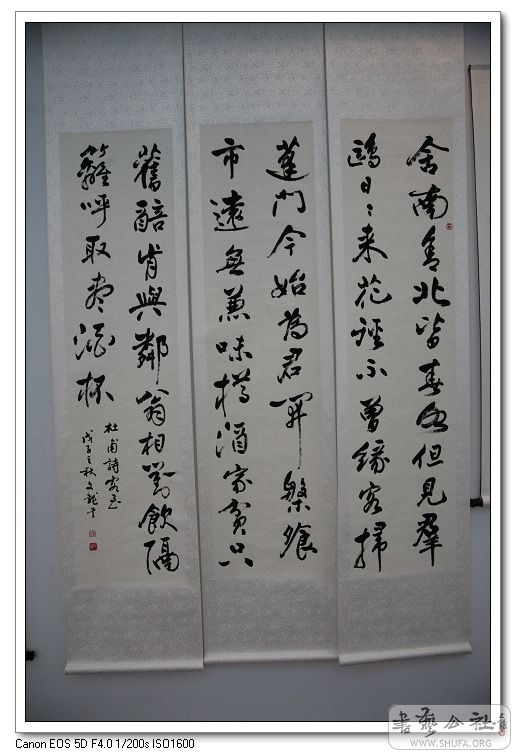 舍南舍北皆春水但見羣
鷗日〻來花徑不曾緣客掃
蓬門今始為君開槃飧
市遠無兼味樽酒家貧只
舊醅肯與鄰翁相對飲隔
籬呼取盡酒杯
杜甫詩客至
戊子之秋文龍書
Canon EOS 5D F4.0 1/200s ISO1600
书艺公社
WWW.SHUFA.ORG